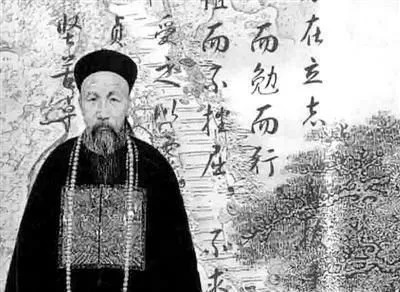 在立志
而勉而行
而不挫屈 不求
受之以
貞
坚苦卓